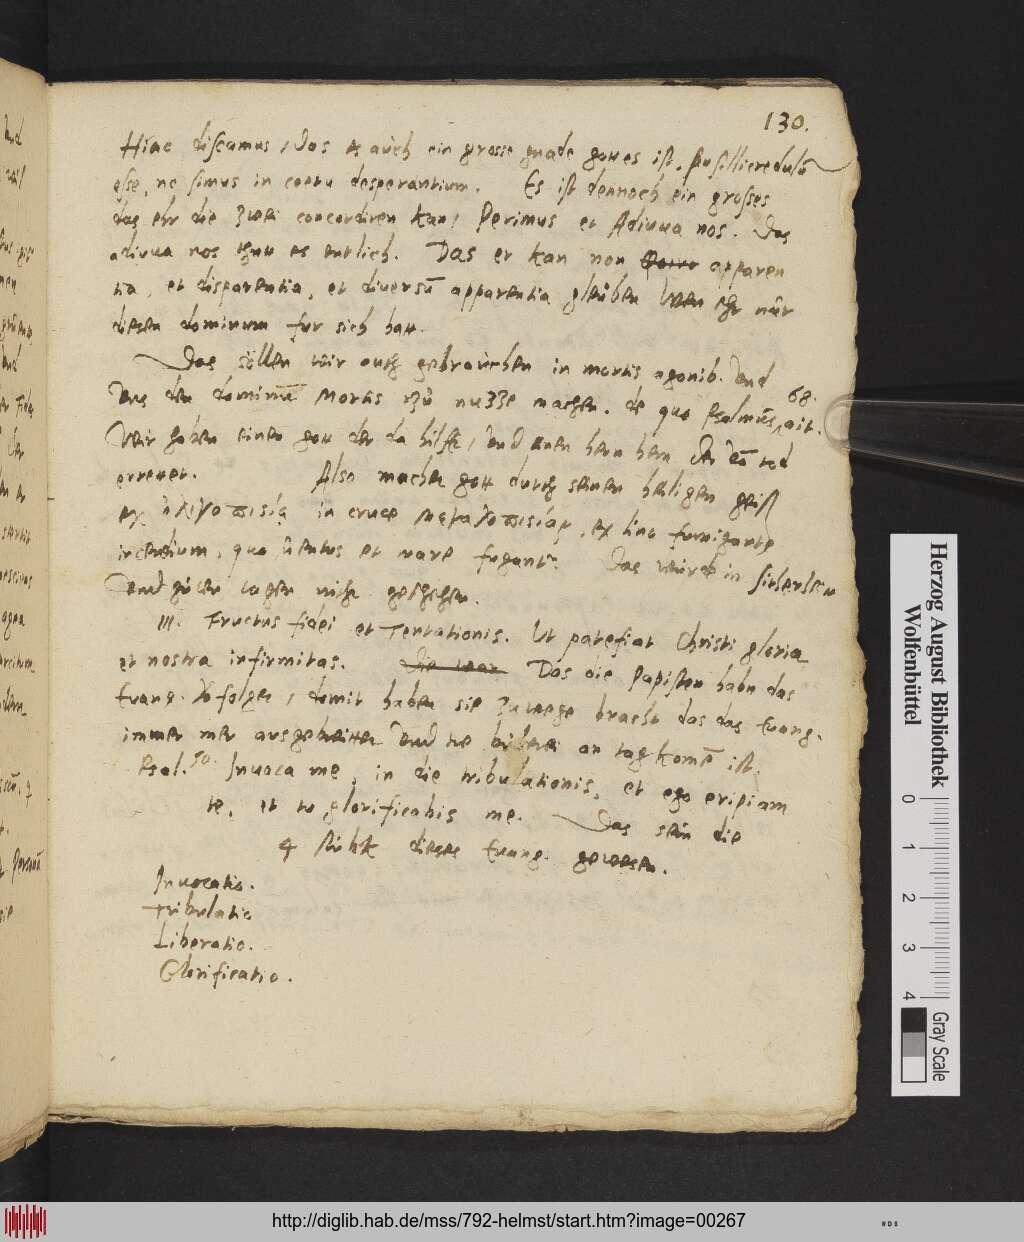 130.
Hinc discamus, Das es auch ein grosse gnade gottes ist, pusillicredulū
esse, ne simus in coetu desperantium. Es ist dennoch ein grosses
das ehr die zwei concordiren kan, Perimus et Adiuua nos. Das
adiuua nos thutt es entlich. Das er kan non apparen
tia, et disparentia, et diuersū apparentia gleuben wen ehr nur
diesen dominum fur sich hatt.
Das sollen wir auch gebrauchen in mortis agonib. Vnd
vns den dominū mortis zu nuzze machen. de quo psalmus 68. ait.
Wir haben einen gott der da hilfft, Vnd einen hern hern der vō tod
errettet. Also machet gott durch seinen heiligen geist
ex ὀλιγοπισίᾳ in cruce μεγαλοπισίαν, ex lino fumigante
incendium, quo uentus et mare fugantr. Das wurde in
vnd guten tagen nicht geschehen.
III. Fructus fidei et Tentationis. Ut patefiat Christi gloria
et nostra infirmitas. Die war Das die Papisten habn das
Euang. Vofolget, domit haben sie zu wege bracht das das Euang.
immer mer ausgebreittet vnd an tag komē ist.
Psal. 50. Inuoca me, in die tribulationis, et ego eripiam
te, et tu glorificabis me. Das sein die
4 stuck dieses Euang. gewesen.
Inuocatio.
Tribulatio
Liberatio.
Glorificatio.
Herzog August Bibliothek
Wolfenbüttel
0 1 2 3 4
Gray Scale
http://diglib.hab.de/mss/792-helmst/start.htm?image=00267